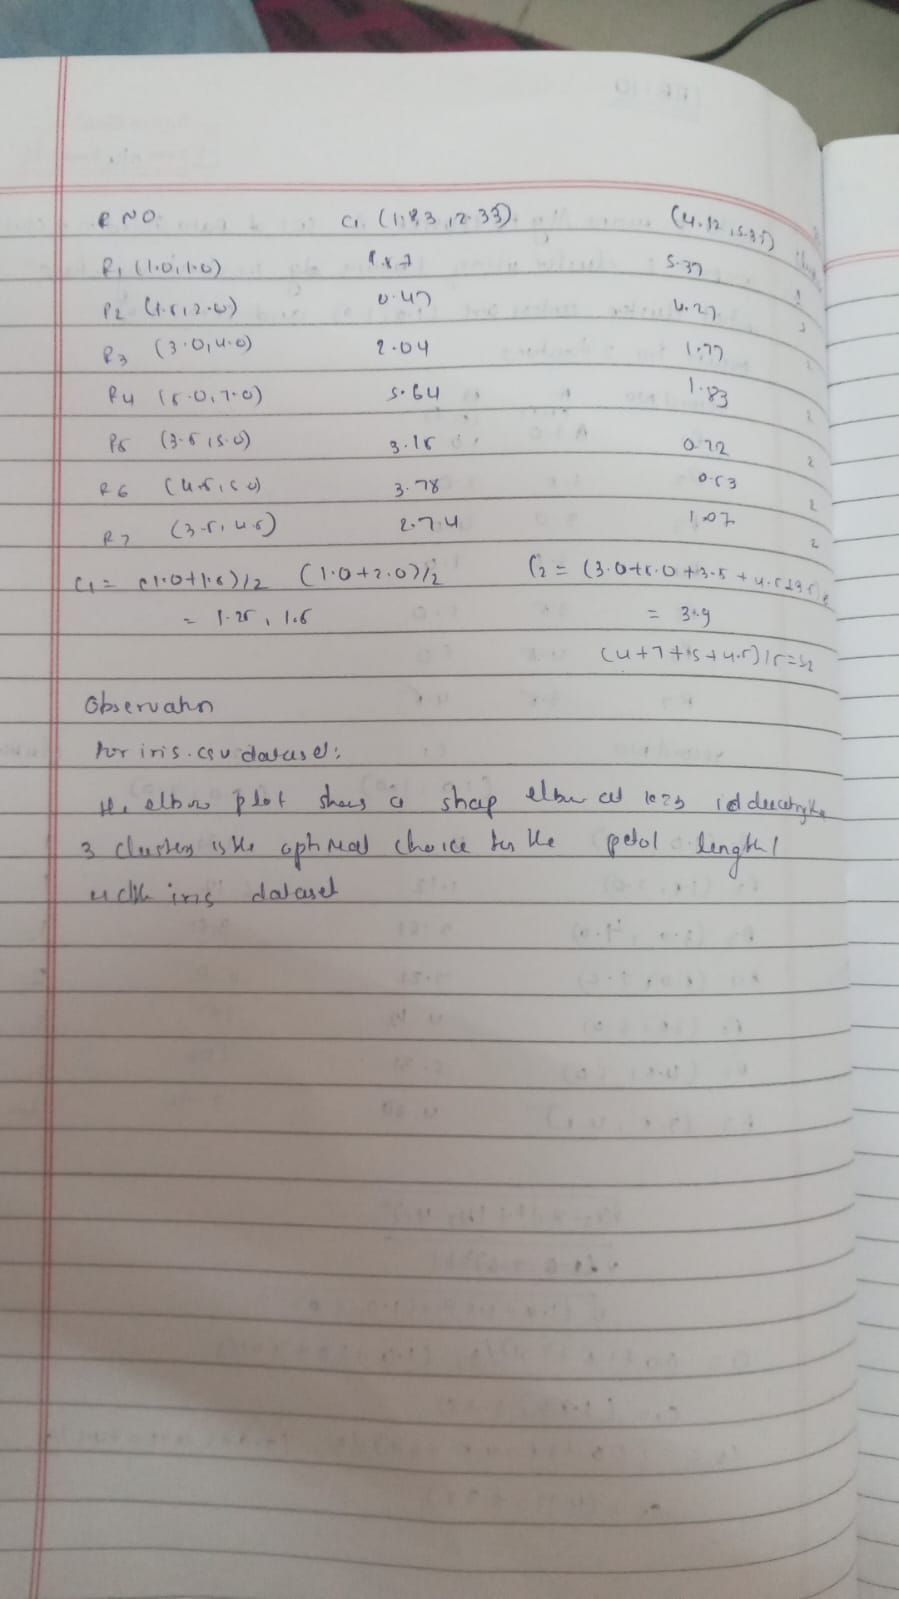 R NO. C1 (1.83, 2.33). (4.12, 5.37)
R1 (1.0, 1.0) 1.57 5.37
R2 (1.5, 2.0) 0.47 4.27
R3 (3.0, 4.0) 2.04 1.77
R4 (5.0, 7.0) 5.64 1.83 2
R5 (3.5, 5.0) 3.15 0.72 2
R6 (4.5, 5.0) 3.78 0.53 2
R7 (3.5, 4.5) 2.74 1.07 2
C1 = (1.0+1.5)/2 (1.0+2.0)/2 C2 = (3.0+5.0+3.5+4.5+3.5)
= 1.25, 1.5 = 3.9
(4+7+5+4.5)/5=5.2
Observation
For iris.csv dataset:
the elbow plot shows a shap elbow at k=3 the
3 clusters is the optimal choice for the petal length /
iris dataset